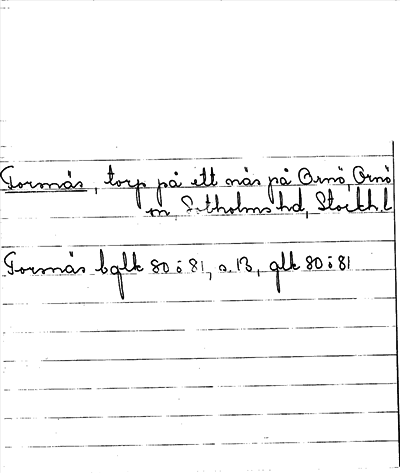 Tormås, torp på ett näs på Ornö, Ornö
sn, Sotholms hd, Stockh. l
Tormås bglk 80 ö 81, o. 13, glk 80 ö 81